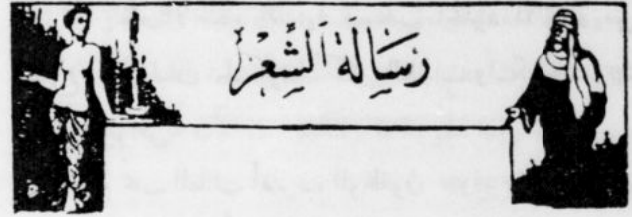 رسالة الشعر